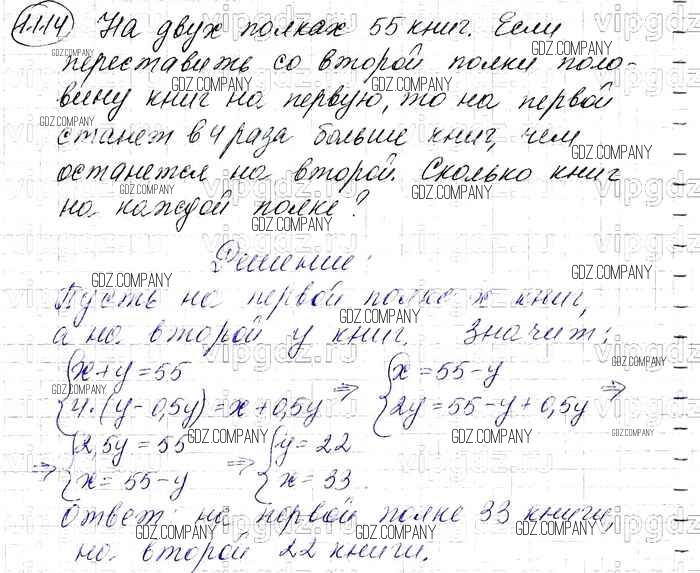 1.114 На двух полках 55 книг. Если
переставить со второй полки поло-
вину книг на первую, то на первой
станет в 4 раза больше книг, чем
останется на второй. Сколько книг
на каждой полке?
Решение:
Пусть на первой полке x книг,
а на второй y книг. Значит:
{x+y=55 => {x=55-y =>
{4·(y-0,5y)=x+0,5y {2y=55-y+0,5y
=> {2,5y=55 => {y=22
{x=55-y {x=33.
Ответ: на первой полке 33 книги,
на второй 22 книги.
GDZ.COMPANY
vipgdz.ru